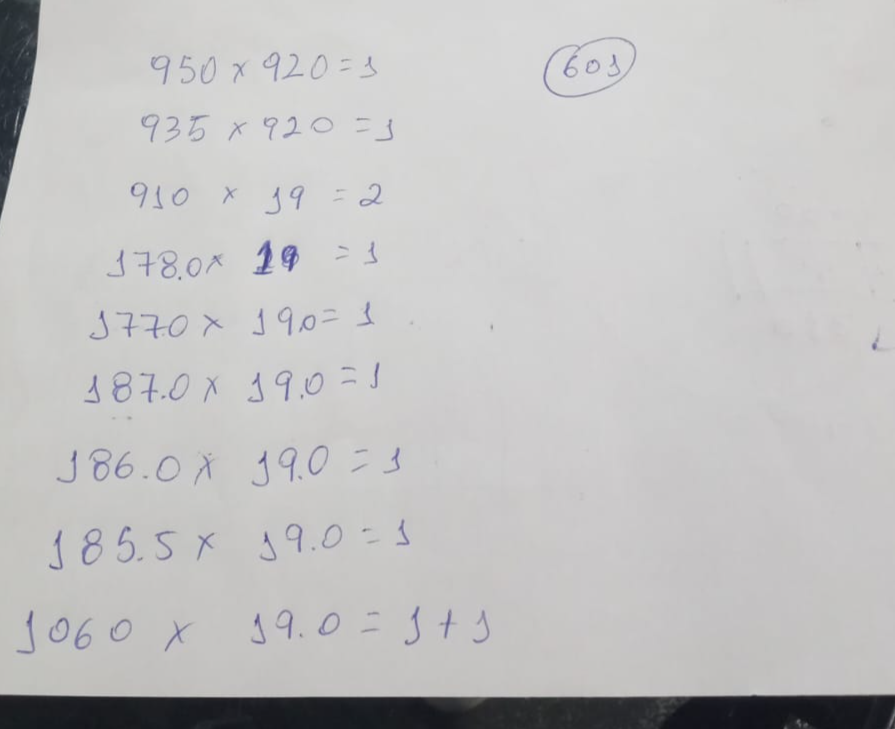 950 x 920 = 1
601
935 x 920 = 1
910 x 19 = 2
178.0 x 19 = 1
177.0 x 19.0 = 1
187.0 x 19.0 = 1
186.0 x 19.0 = 1
185.5 x 19.0 = 1
1060 x 19.0 = 1 + 1